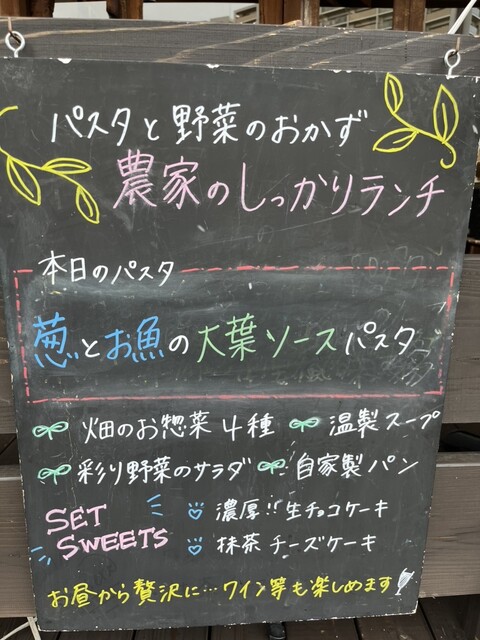 パスタと野菜のおかず
農家のしっかりランチ
本日のパスタ
葱とお魚の大葉ソースパスタ
畑のお惣菜4種 温製スープ
彩り野菜のサラダ 自家製パン
SET SWEETS
濃厚!!生チョコケーキ
抹茶チーズケーキ
お昼から贅沢に…ワイン等も楽しめます